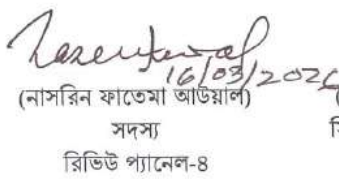 16/03/202
(নাসরিন ফাতেমা আউয়াল)
সদস্য
রিভিউ প্যানেল-৪